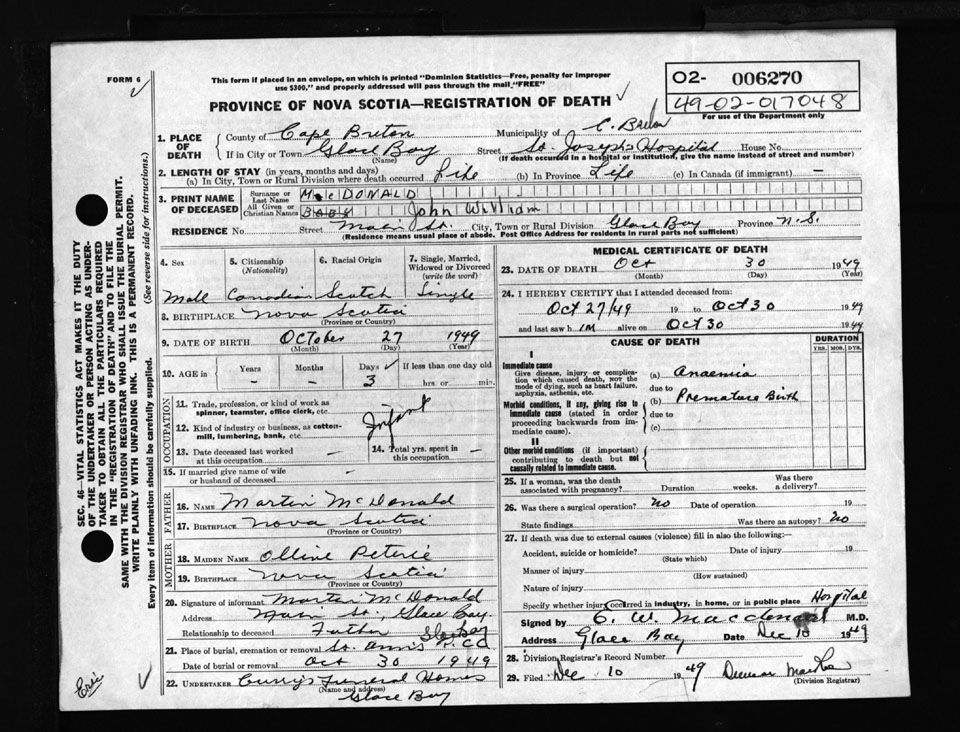 FORM 6
This form if placed in an envelope, on which is printed "Dominion Statistics—Free, penalty for improper
use $300," and properly addressed will pass through the mail "FREE"
O2- 006270
49-02-017048
For use of the Department only
PROVINCE OF NOVA SCOTIA—REGISTRATION OF DEATH
1. PLACE OF DEATH
County of Cape Breton Municipality of C. Breton
If in City or Town Glace Bay Street St. Joseph's Hospital House No.
(Name) (If death occurred in a hospital or institution, give the name instead of street and number)
2. LENGTH OF STAY (in years, months and days)
(a) In City, Town or Rural Division where death occurred Life (b) In Province Life (c) In Canada (if immigrant) —
3. PRINT NAME OF DECEASED
Surname or Last Name MacDONALD
All Given or Christian Names BABY John William
RESIDENCE No. Street Main St. City, Town or Rural Division Glace Bay Province N.S.
(Residence means usual place of abode. Post Office Address for residents in rural parts not sufficient)
4. Sex
5. Citizenship (Nationality)
6. Racial Origin
7. Single, Married, Widowed or Divorced (write the word)
Male Canadian Scotch Single
8. BIRTHPLACE Nova Scotia
(Province or Country)
9. DATE OF BIRTH October 27 1949
(Month) (Day) (Year)
10. AGE in Years Months Days If less than one day old
- - 3 hrs. or min.
OCCUPATION
11. Trade, profession, or kind of work as spinner, teamster, office clerk, etc.
12. Kind of industry or business, as cotton-mill, lumbering, bank, etc.
Infant
13. Date deceased last worked at this occupation —
14. Total yrs. spent in this occupation —
15. If married give name of wife or husband of deceased —
FATHER
16. Name Martin McDonald
17. Birthplace Nova Scotia
(Province or Country)
MOTHER
18. Maiden Name Olline Peterie
19. Birthplace Nova Scotia
(Province or Country)
20. Signature of informant Martin McDonald
Address Main St, Glace Bay.
Relationship to deceased Father
21. Place of burial, cremation or removal St. Ann's R.C.
Date of burial or removal Oct 30 1949
22. UNDERTAKER Curry's Funeral Homes
Glace Bay
MEDICAL CERTIFICATE OF DEATH
23. DATE OF DEATH Oct 30 1949
(Month) (Day) (Year)
24. I HEREBY CERTIFY that I attended deceased from:
Oct 27/49 19 to Oct 30 1949
and last saw h IM alive on Oct 30 1949
CAUSE OF DEATH
DURATION
YRS. MOS. DYS.
I
Immediate cause
Give disease, injury or complication which caused death, NOT the mode of dying, such as heart failure, asphyxia, asthenia, etc.
(a) Anaemia
due to
Morbid conditions, if any, giving rise to immediate cause (stated in order proceeding backwards from immediate cause).
(b) Premature Birth
due to
(c)
II
Other morbid conditions (if important) contributing to death but not causally related to immediate cause.
25. If a woman, was the death associated with pregnancy? Duration weeks. Was there a delivery?
26. Was there a surgical operation? No Date of operation 19
State findings Was there an autopsy? No
27. If death was due to external causes (violence) fill in also the following:
Accident, suicide or homicide? Date of injury 19
(State which)
Manner of injury
(How sustained)
Nature of injury
Specify whether injury occurred in industry, in home, or in public place Hospital
Signed by C. W. Macdonald M.D.
Address Glace Bay Date Dec 10 1949
28. Division Registrar's Record Number
29. Filed Dec 10 1949
(Division Registrar)
SEC. 46—VITAL STATISTICS ACT MAKES IT THE DUTY
OF THE UNDERTAKER OR PERSON ACTING AS UNDER-
TAKER TO OBTAIN ALL THE PARTICULARS REQUIRED
IN THE "REGISTRATION OF DEATH" AND TO FILE THE
SAME WITH THE DIVISION REGISTRAR WHO SHALL ISSUE THE BURIAL PERMIT.
WRITE PLAINLY WITH UNFADING INK. THIS IS A PERMANENT RECORD.
Every item of information should be carefully supplied. (See reverse side for instructions.)